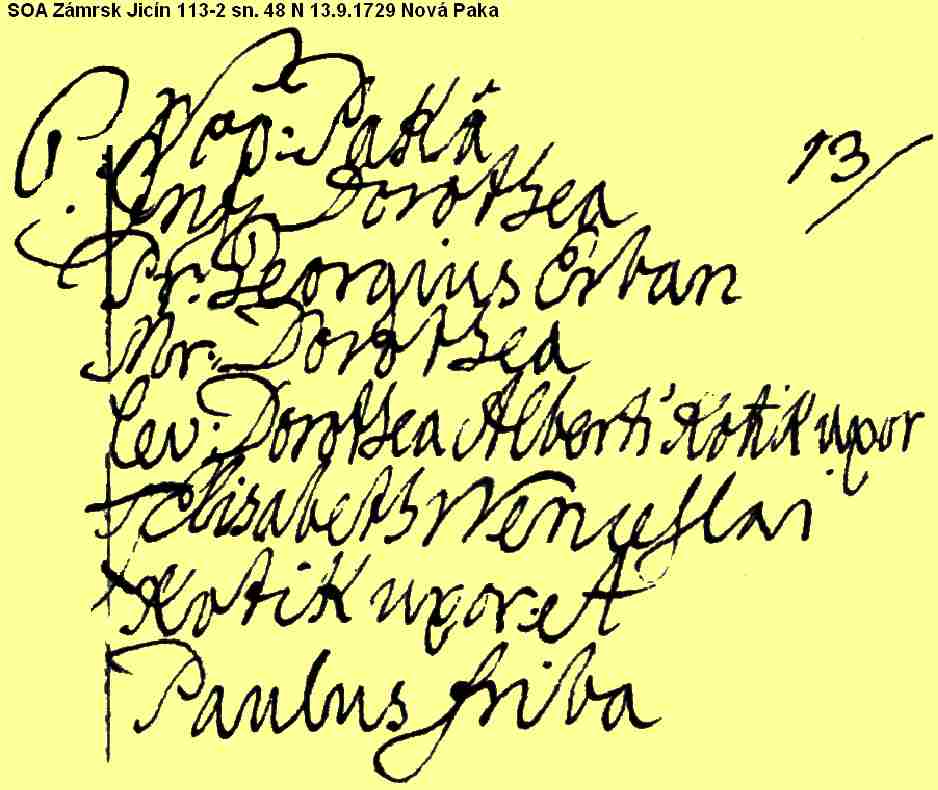 SOA Zámrsk Jicín 113-2 sn. 48 N 13.9.1729 Nová Paka
Nap: Paká
13
Dorothea
Pr: Georgius Erban
Mr: Dorothea
Lev: Dorothea Alberti Kotik uxor
Elisabeth Wenceslai
Kotik uxor: et
Paulus Friba